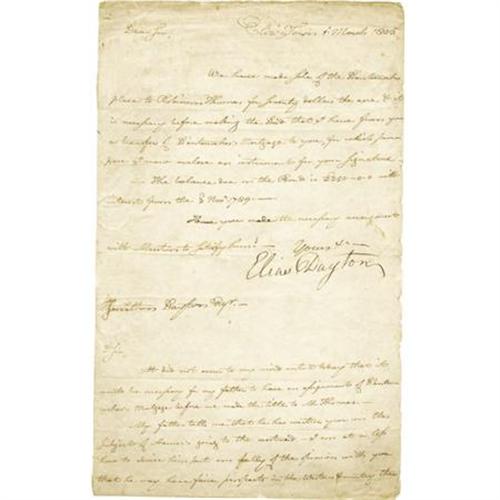 Dear Sir Eliz. Town 1 March 1805
We have made sale of the
place to Robinson Thomas for seventy dollars the acre & it
is necessary before making the Deed that I have from you
a transfer of mortgage to you, for which purpose
I now inclose an instrument for your signature
The balance due on the Bond is with
interest from the 8 Nov. 1789.—
Have you made the necessary arrangements
with
Yours &c—
Elias Dayton
Jonathan Dayton Esqr.—
Sir
It did not occur to my mind until today that it
would be necessary for my father to have an assignment of
mortgage before we made the title to Mr Thomas.—
My father tells me that he has written you on the
subject of going to the westward — I am at a loss
how to advise him, but am fully of the opinion with you
that he may have fair prospects in the Western Country than